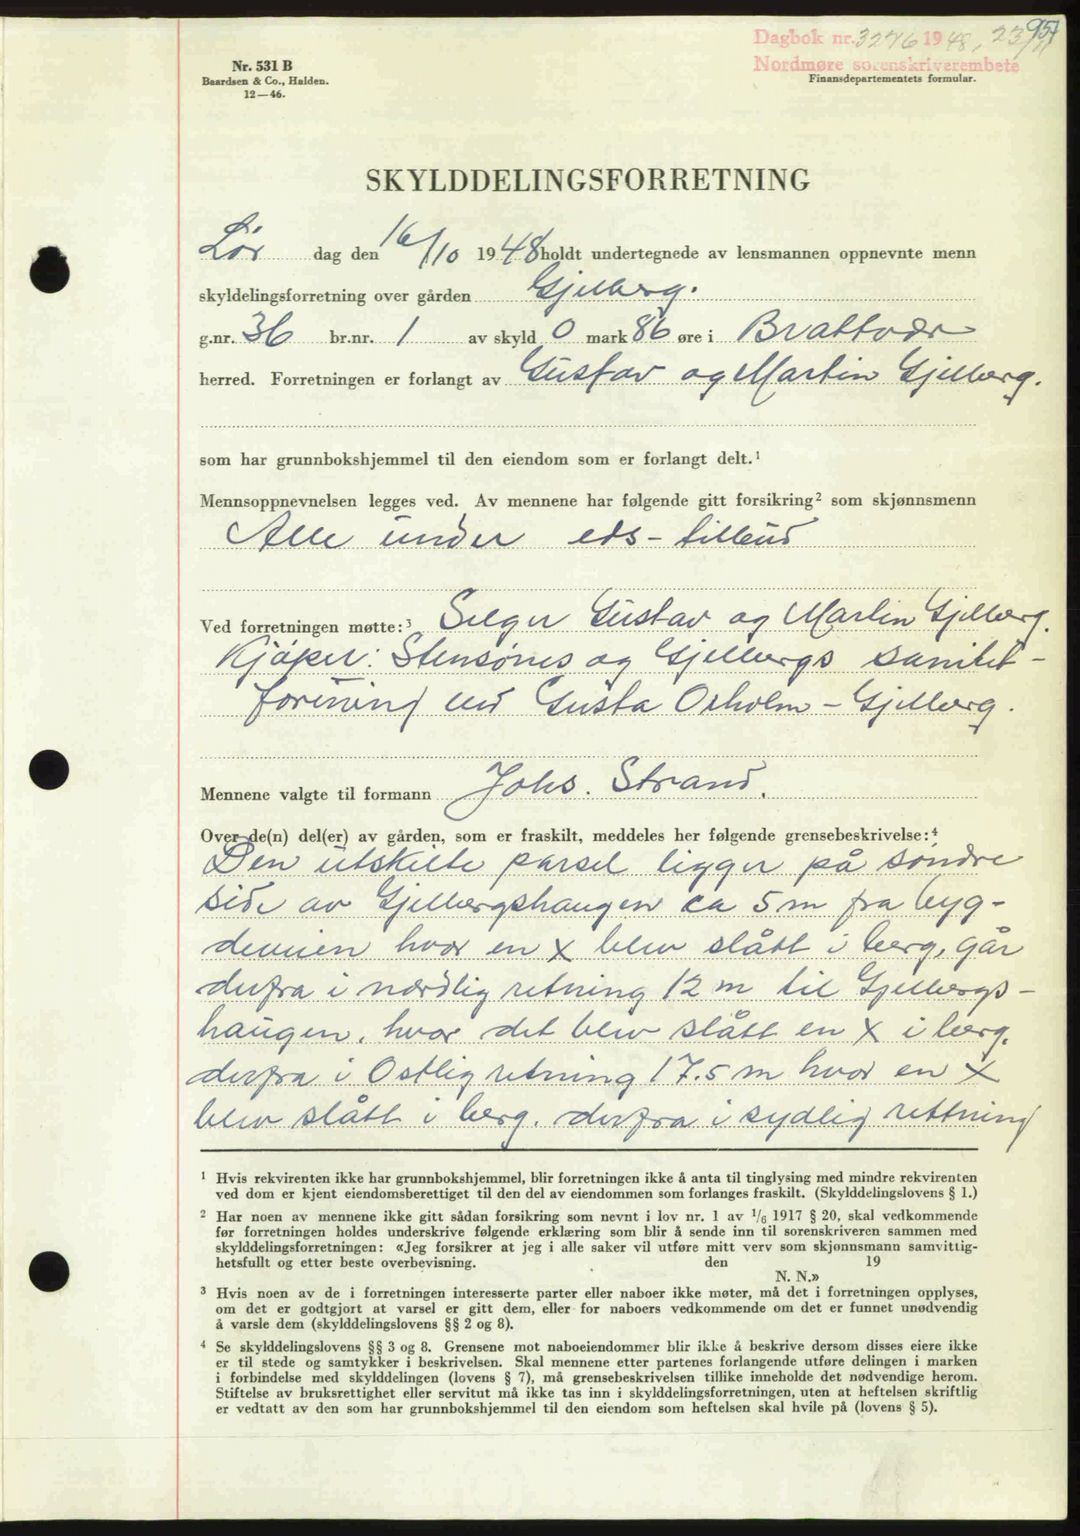 957
Dagbok nr. 3276 1948, 23/11
Nordmøre sorenskriverembete
Nr. 531 B
Baardsen & Co., Halden.
12—46.
Finansdepartementets formular.
SKYLDDELINGSFORRETNING
Lør dag den 16/10 1948 holdt undertegnede av lensmannen oppnevnte menn
skyldelingsforretning over gården Gjelberg.
g.nr. 36 br.nr. 1 av skyld 0 mark 86 øre i Brattvær
herred. Forretningen er forlangt av Gustav og Martin Gjelberg.
som har grunnbokshjemmel til den eiendom som er forlangt delt.¹
Mennsoppnevnelsen legges ved. Av mennene har følgende gitt forsikring² som skjønnsmenn
Alle under eds-tilbud
Ved forretningen møtte:³ Selger Gustav og Martin Gjelberg.
Kjøper: Stensønes og Gjelbergs sanitet-
forening ved Gusta Orholm-Gjelberg.
Mennene valgte til formann Johs. Strand.
Over de(n) del(er) av gården, som er fraskilt, meddeles her følgende grensebeskrivelse:⁴
Den utskilte parsel ligger på søndre
side av Gjelbergshaugen ca 5 m fra byg-
deveien hvor en X blev slått i berg, går
derfra i nordlig retning 12 m til Gjelbergs-
haugen, hvor det blev slått en X i berg.
derfra i Østlig retning 17.5 m hvor en X
blev slått i berg. derfra i sydlig rettning
¹ Hvis rekvirenten ikke har grunnbokshjemmel, blir forretningen ikke å anta til tinglysing med mindre rekvirenten
ved dom er kjent eiendomsberettiget til den del av eiendommen som forlanges fraskilt. (Skylddelingslovens § 1.)
² Har noen av mennene ikke gitt sådan forsikring som nevnt i lov nr. 1 av 1/6 1917 § 20, skal vedkommende
før forretningen holdes underskrive følgende erklæring som blir å sende inn til sorenskriveren sammen med
skylddelingsforretningen: «Jeg forsikrer at jeg i alle saker vil utføre mitt verv som skjønnsmann samvittig-
hetsfullt og etter beste overbevisning. den 19
N. N.»
³ Hvis noen av de i forretningen interesserte parter eller naboer ikke møter, må det i forretningen opplyses,
om det er godtgjort at varsel er gitt dem, eller for naboers vedkommende om det er funnet unødvendig
å varsle dem (skylddelingslovens §§ 2 og 8).
⁴ Se skylddelingslovens §§ 3 og 8. Grensene mot naboeiendommer blir ikke å beskrive dersom disses eiere ikke
er til stede og samtykker i beskrivelsen. Skal mennene etter partenes forlangende utføre delingen i marken
i forbindelse med skylddelingen (lovens § 7), må grensebeskrivelsen tillike inneholde det nødvendige herom.
Stiftelse av bruksrettighet eller servitut må ikke tas inn i skylddelingsforretningen, uten at heftelsen skriftlig
er vedtatt av den som har grunnbokshjemmel til den eiendom som heftelsen skal hvile på (lovens § 5).